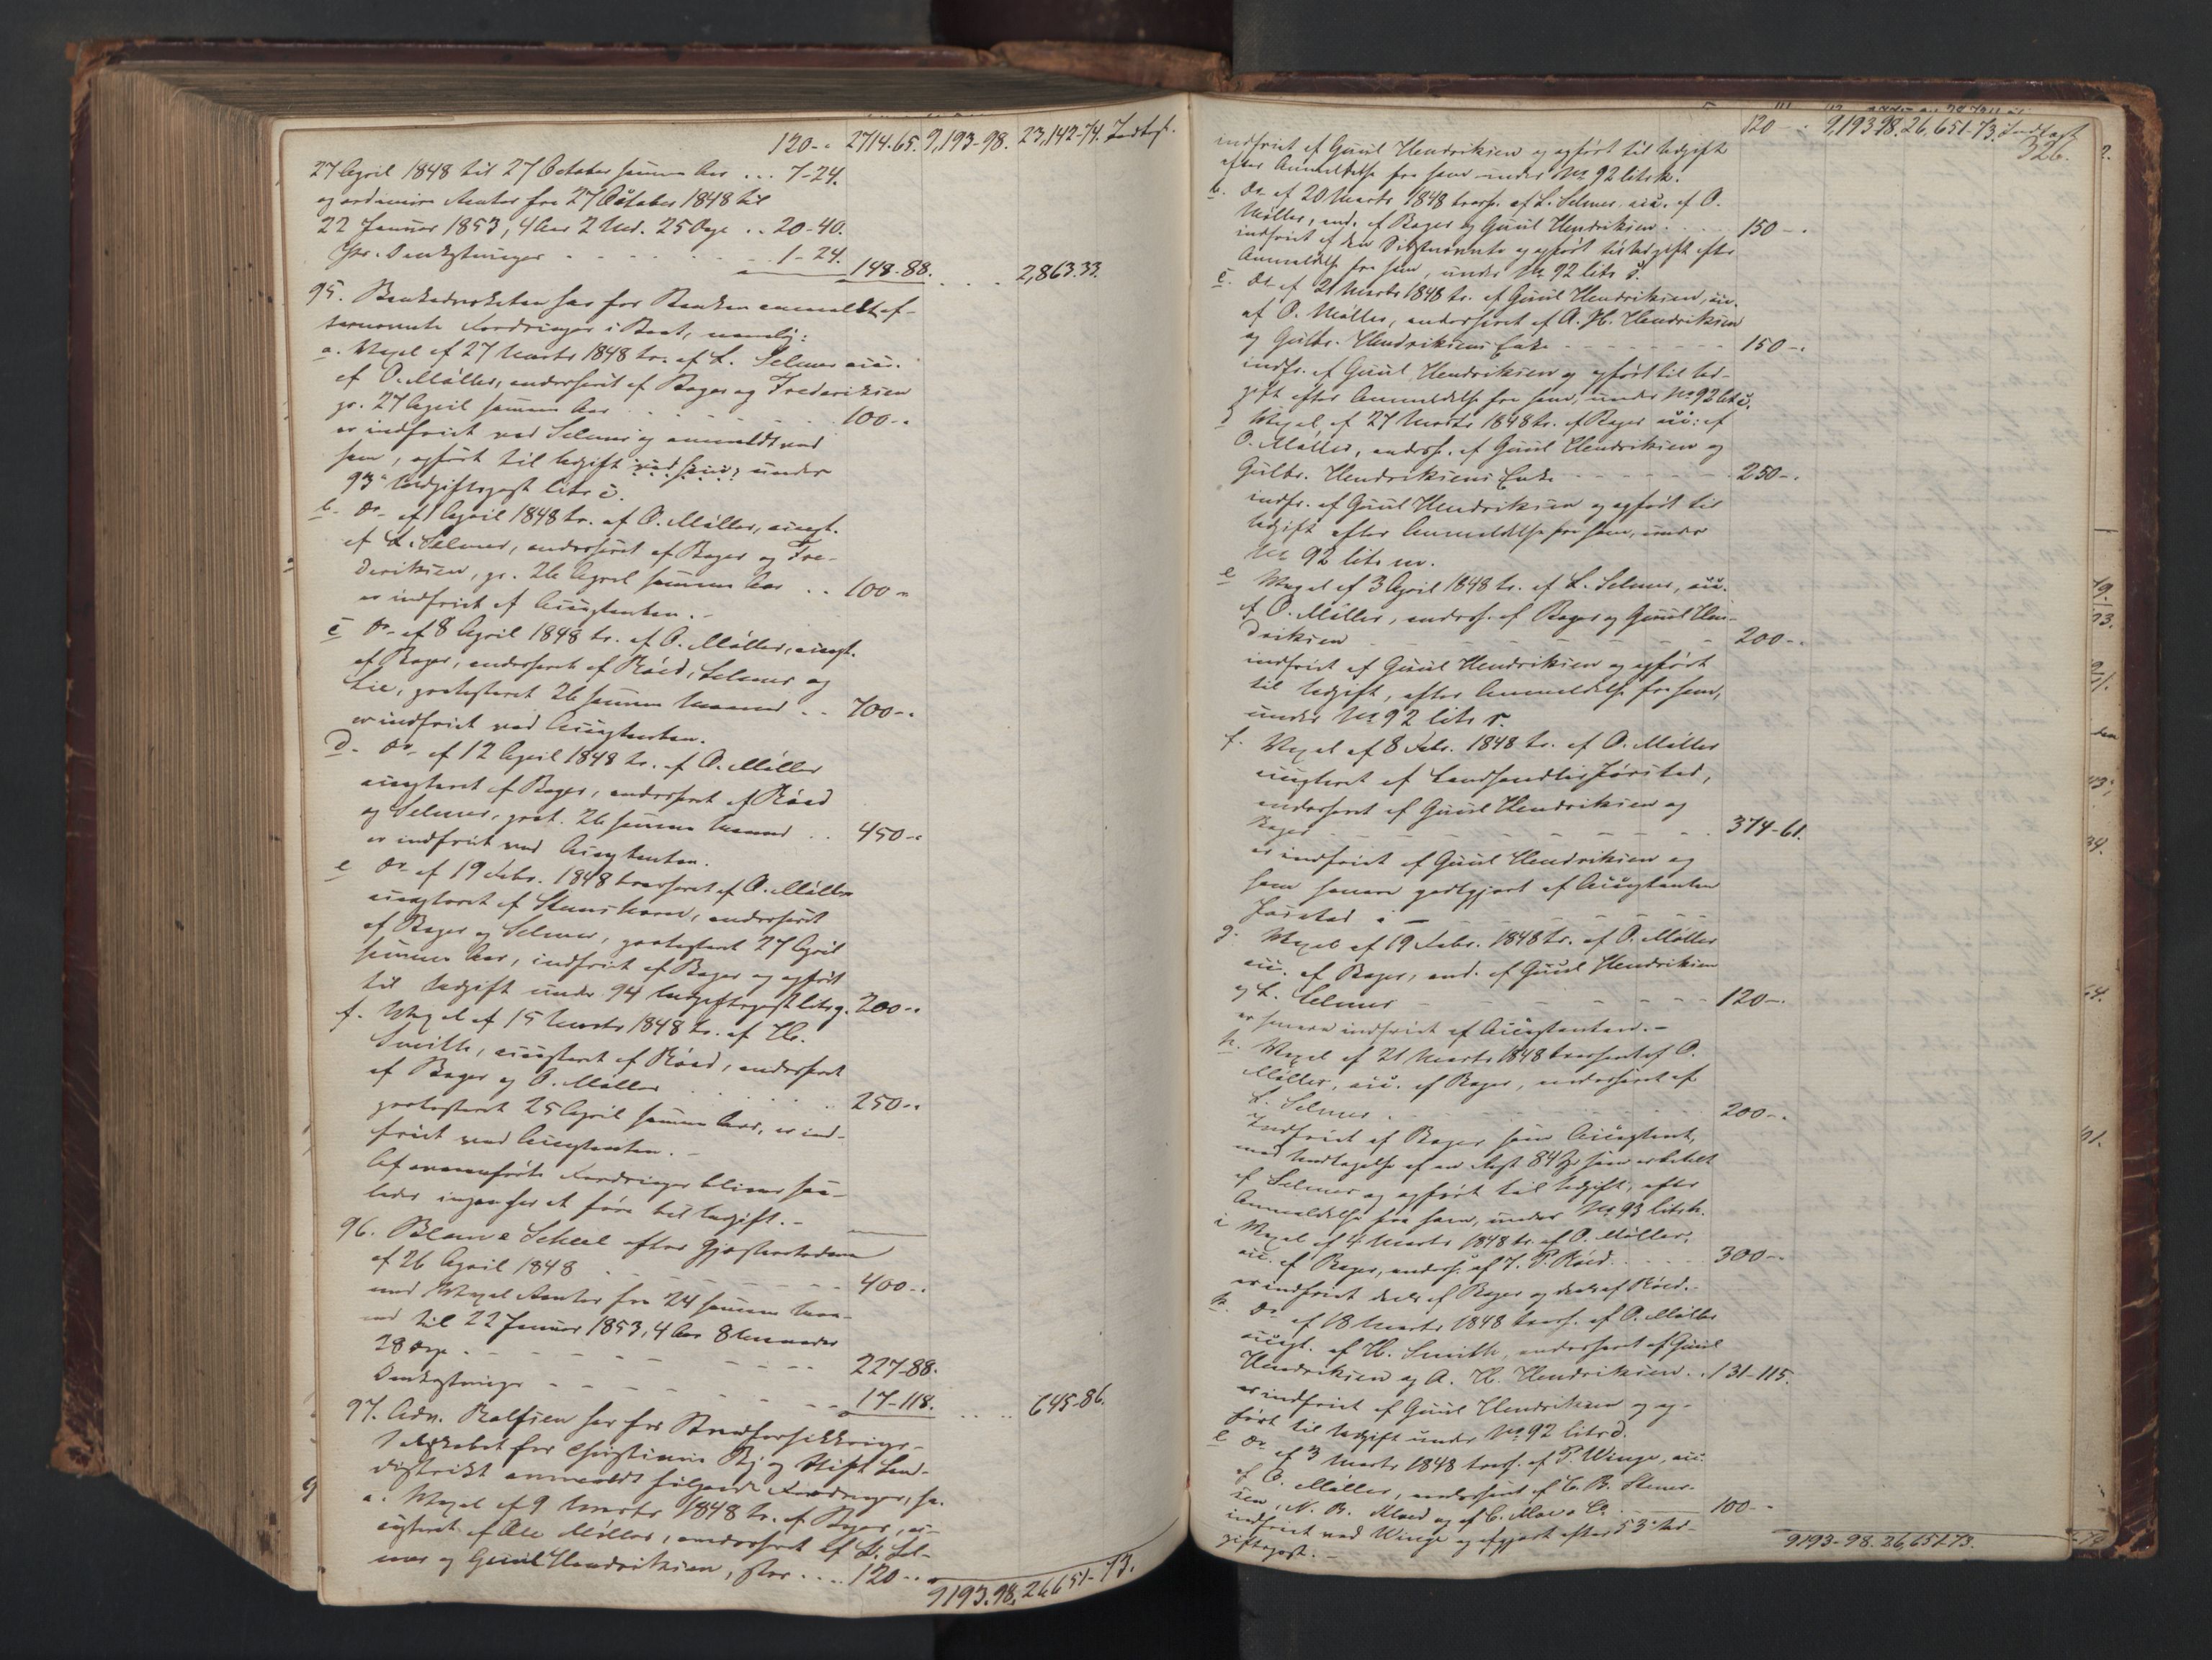 120-. 2714.65. 9,193-98. 23,142-74. Indtægt.
27 April 1848 til 27 October samme Aar ... 7-24.
og ordinaire Renter fra 27 October 1848 til
22 Januar 1853, 4 Aar 2 Md. 25 Dage .. 20-40.
Omkostninger - - - 1-24. 148-88. . . . 2,863.33.
95. Bankadvokaten har for Banken anmeldt ef-
ternævnte Fordringer i Boet, nemlig:
a. Vexel af 27 Marts 1848 tr. af L. Selmer acc.
af O. Møller, endosseret af Bager og Frederiksen
pr. 27 April samme Aar . . . 100-.
er indfriet ved Selmer og anmeldt ved
ham, opført til Udgift ved ham, under
93de Udgiftspost litr c.
b. Do af 1 April 1848 tr. af O. Møller, accept.
af L. Selmer, endosseret af Bager og Fre-
deriksen, pr. 26 April samme Aar .. 100-
er indfriet af Acceptanten. -
c Do af 8 April 1848 tr. af O. Møller, accept.
af Bager, endosseret af Röed, Selmer og
Lie, protesteret 26 samme Maaned .. 700-.
er indfriet ved Acceptanten.
d. Do af 12 April 1848 tr. af O. Møller
accepteret af Bager, endosseret af Röed
og Selmer, prot. 26 samme Maaned .. 450-.
er indfriet ved Acceptanten.
e Do af 19 Febr. 1848 trasseret af O. Møller
accepteret af , endosseret
af Bager og Selmer, protesteret 27 April
samme Aar, indfriet af Bager og opført
til Udgift under 94 Udgiftspost litr g. 200-.
f. Vexel af 15 Marts 1848 tr. af H.
Smith, accepteret af Röed, endosseret
af Bager og O. Møller . . . 250-.
protesteret 25 April samme Aar, er ind-
friet ved Acceptanten. -
Af ovenanførte Fordringer bliver saa-
ledes ingen her at føre til Udgift. -
96. Scheel efter
af 26 April 1848 - - - 400-.
med Vexel Renter fra 24 samme Maa-
ned til 22 Januar 1853, 4 Aar 8 Maaneder
28 Dage - - - 227-88.
Omkostninger - - - 17-118. . . . 645-86.
97. Adv. har for Brandforsikrings-
Selskabet for Christiania By og Stift Land-
distrikt anmeldt følgende Fordringer,
a. Vexel af 9 Marts 1848 tr. af Bager, ac-
cepteret af Ole Møller, endosseret af L. Sel-
mer og Guul Hendriksen, stor .... 120-.
9193.98. 26651-73.
120-. 9,193-98. 26,651-73. Indtægt
326.
indfriet af Guul Hendriksen og opført til Udgift
efter Anmeldelse fra ham under No 92 litr k.
b. Do af 20 Marts 1848 trass. af L. Selmer, acc. af O.
Møller, end. af Bager og Guul Hendriksen . . . 150-.
indfriet af den Sidstnævnte og opført til Udgift efter
Anmeldelse fra ham, under No 92 litr
c. Do af 21 Marts 1848 tr. af Guul Hendriksen, acc.
af O. Møller, endosseret af A. H. Hendriksen
og Gulbr. Hendriksens Enke - - - 150-.
indfr. af Guul Hendriksen og opført til Ud-
gift efter Anmeldelse fra ham, under No 92 litr
d Vexel af 27 Marts 1848 tr. af Bager acc. af
O. Møller, endoss. af Guul Hendriksen og
Gulbr. Hendriksens Enke - - - 250-.
indfr. af Guul Hendriksen og opført til
Udgift efter Anmeldelse fra ham, under
No 92 litr m.
e Vexel af 3 April 1848 tr. af L. Selmer, acc.
af O. Møller, endoss. af Bager og Guul Hen-
driksen - - - 200-.
indfriet af Guul Hendriksen og opført
til Udgift, efter Anmeldelse fra ham,
under No 92 litr r.
f. Vexel af 8 Febr. 1848 tr. af O. Møller
accepteret af Landhandler Jörstad,
endosseret af Guul Hendriksen og
Bager - - - 374-61.
er indfriet af Guul Hendriksen og
ham senere godtgjort af Acceptanten
Jörstad
g. Vexel af 19 Febr. 1848 tr. af O. Møller
acc. af Bager, end. af Guul Hendriksen
og L. Selmer - - - 120-.
er senere indfriet af Acceptanten. -
h. Vexel af 21 Marts 1848 trasseret af O.
Møller, acc. af Bager, endosseret af
L. Selmer . . . 200-.
Indfriet af Bager som Acceptant,
med Undtagelse af en Rest 84 som er betalt
af Selmer og opført til Udgift, efter
Anmeldelse fra ham, under No 93 litr h.
i Vexel af 4 Marts 1848 tr. af O. Møller,
acc. af Bager, endoss. af J. P. Röed . . . 300-.
er indfriet deels af Bager og deels af Röed. -
k. Do af 18 Marts 1848 trass. af O. Møller
accept. af H. Smith, endosseret af Guul
Hendriksen og A. H. Hendriksen . . 131-115.
er indfriet af Guul Hendriksen og op-
ført til Udgift under No 92 litr d.
l Do af 3 Marts 1848 trass. af P. Winge, acc.
af O. Møller, endosseret af C. B. Stener-
sen, N. B. og af C. Moe & Co. . . . 100-.
indfriet ved Winge og opgjort efter 53de Ud-
giftspost. -
9193-98. 26,651-73.